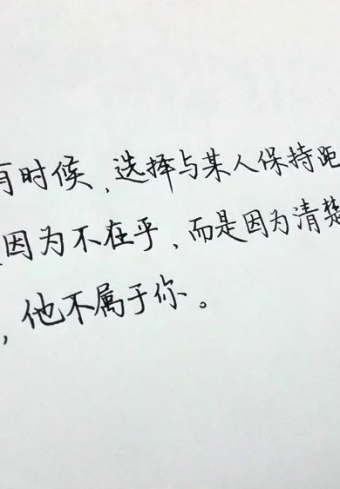 有时候,选择与某人保持距
因为不在乎,而是因为清楚
,他不属于你。